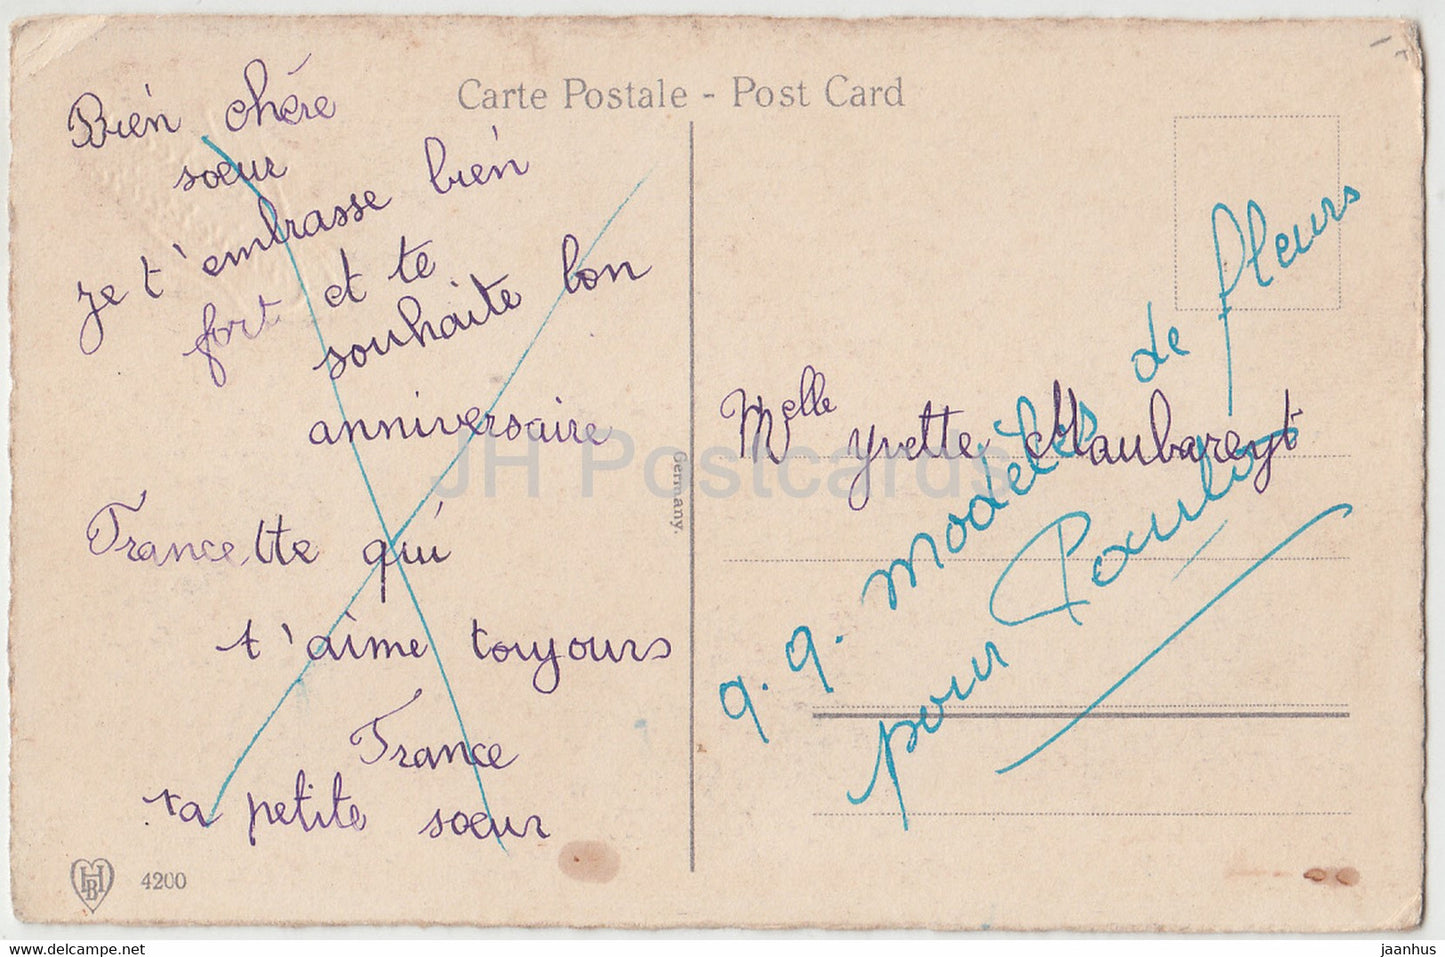 Carte Postale - Post Card
Bien chére
sœur
je t'embrasse bien
fort et te
souhaite bon
anniversaire
Francette qui
t'aime toujours
France
ta petite sœur
4200
HB
Germany.
Melle Yvette Maubareyt
q. q. modèles de fleurs
pour
JH Postcards
www.delcampe.net
jaanhus